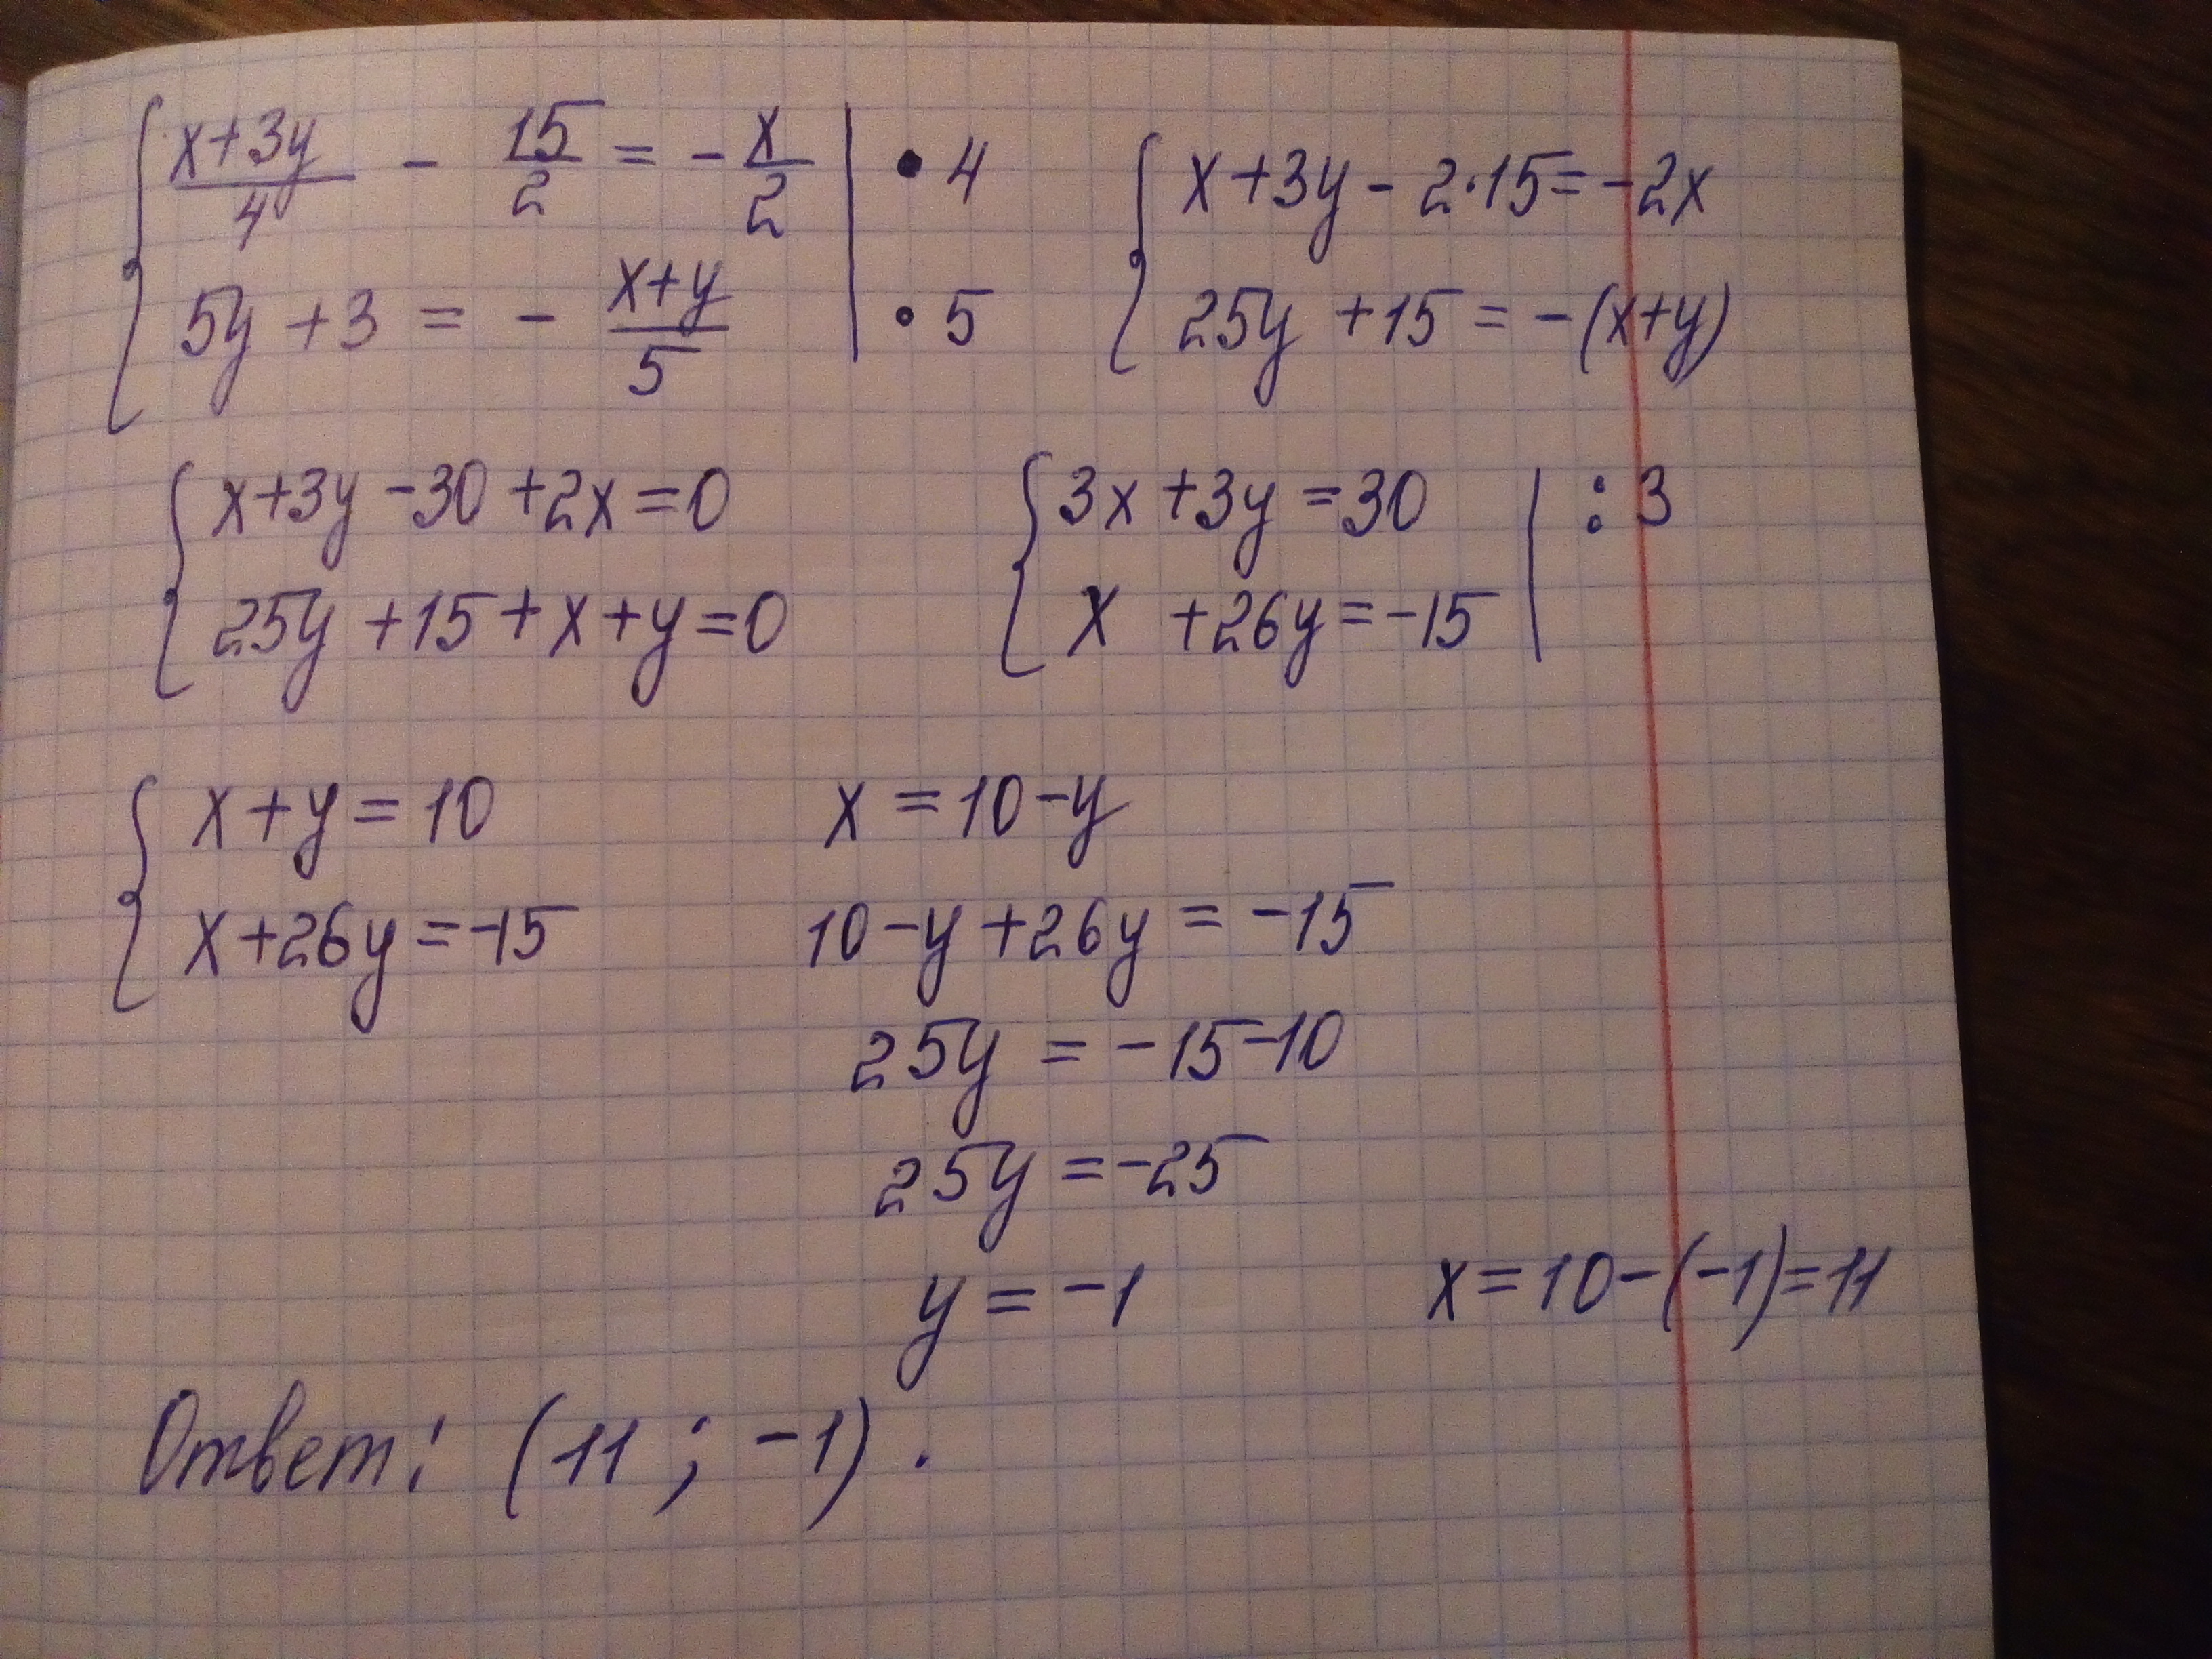 { (x+3y)/4 - 15/2 = -x/2 | • 4
{ 5y+3 = - (x+y)/5 | • 5
{ x+3y - 2·15 = -2x
{ 25y +15 = -(x+y)
{ x+3y -30 +2x = 0
{ 25y +15 + x + y = 0
{ 3x +3y = 30 | : 3
{ x +26y = -15 |
{ x + y = 10
{ x+26y = -15
x = 10 - y
10 - y + 26y = -15
25y = -15 -10
25y = -25
y = -1
x = 10 - (-1) = 11
Ответ: (11 ; -1) .